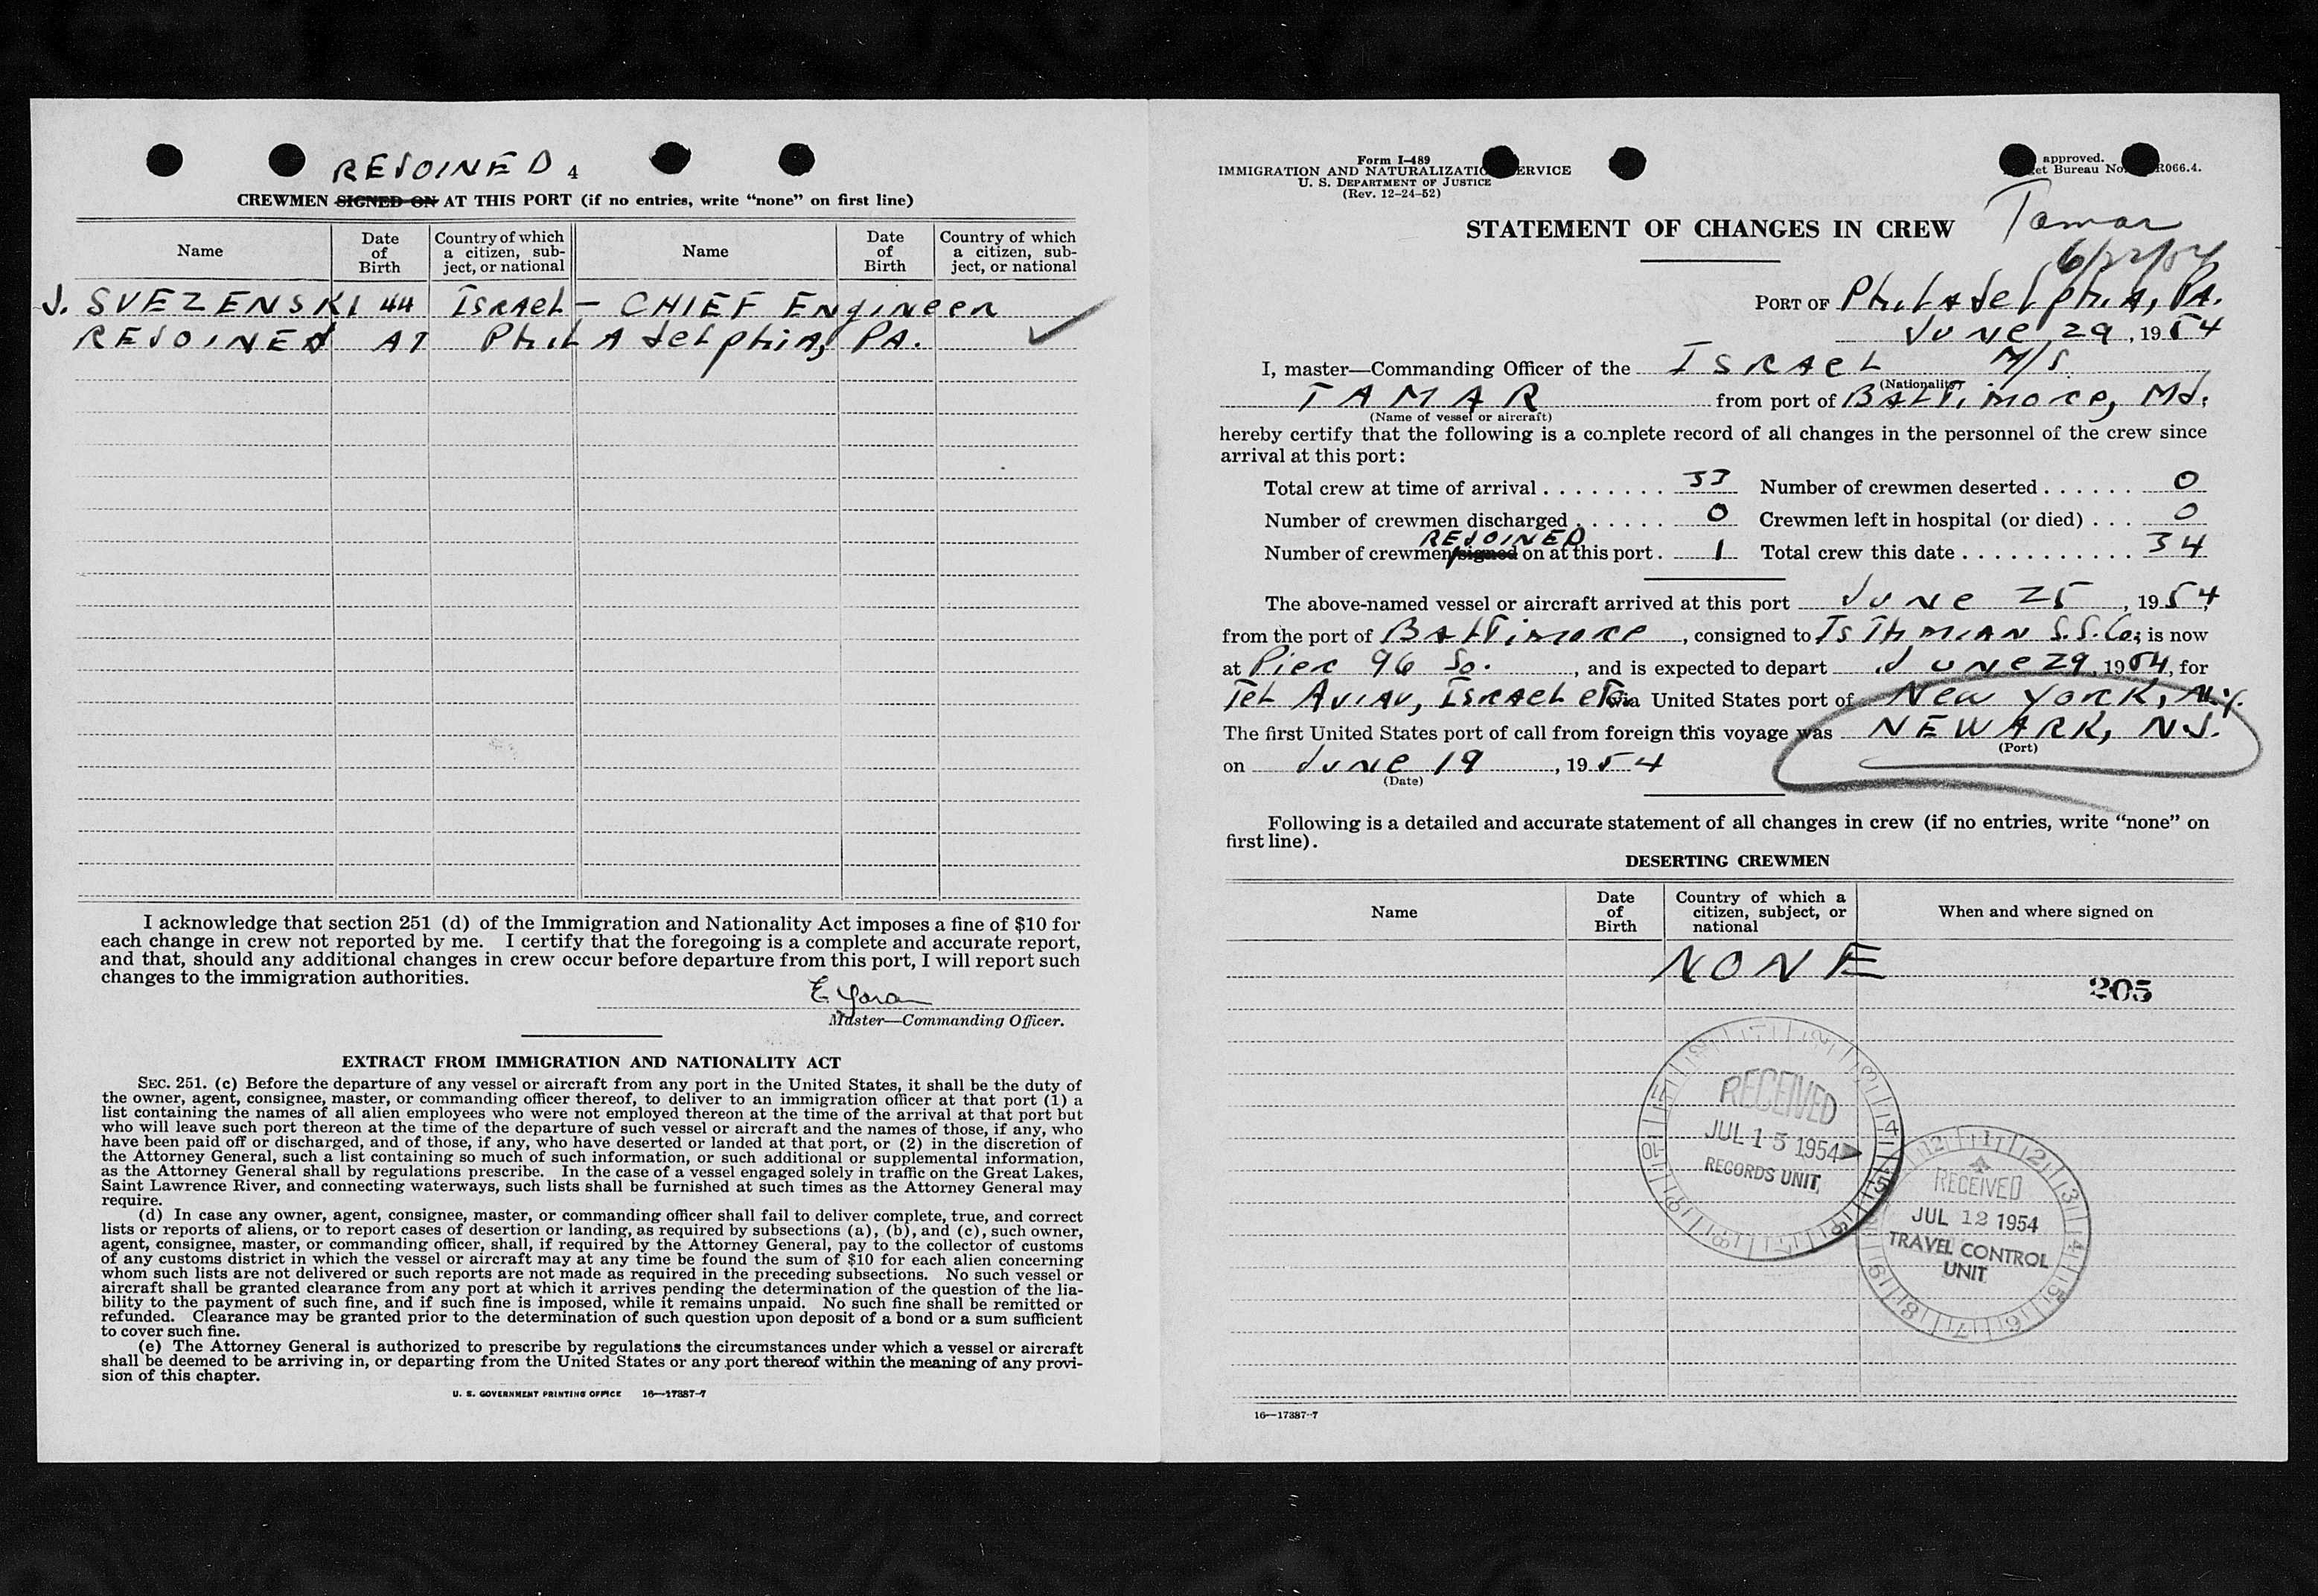 REJOINED 4
CREWMEN SIGNED ON AT THIS PORT (if no entries, write “none” on first line)
Name
Date of Birth
Country of which a citizen, subject, or national
Name
Date of Birth
Country of which a citizen, subject, or national
J. SVEZENSKI 44 ISRAEL - CHIEF Engineer
REJOINED AT PhilAdelphia, PA.
I acknowledge that section 251 (d) of the Immigration and Nationality Act imposes a fine of $10 for
each change in crew not reported by me. I certify that the foregoing is a complete and accurate report,
and that, should any additional changes in crew occur before departure from this port, I will report such
changes to the immigration authorities.
E. Yoran
Master—Commanding Officer.
EXTRACT FROM IMMIGRATION AND NATIONALITY ACT
SEC. 251. (c) Before the departure of any vessel or aircraft from any port in the United States, it shall be the duty of
the owner, agent, consignee, master, or commanding officer thereof, to deliver to an immigration officer at that port (1) a
list containing the names of all alien employees who were not employed thereon at the time of the arrival at that port but
who will leave such port thereon at the time of the departure of such vessel or aircraft and the names of those, if any, who
have been paid off or discharged, and of those, if any, who have deserted or landed at that port, or (2) in the discretion of
the Attorney General, such a list containing so much of such information, or such additional or supplemental information,
as the Attorney General shall by regulations prescribe. In the case of a vessel engaged solely in traffic on the Great Lakes,
Saint Lawrence River, and connecting waterways, such lists shall be furnished at such times as the Attorney General may
require.
(d) In case any owner, agent, consignee, master, or commanding officer shall fail to deliver complete, true, and correct
lists or reports of aliens, or to report cases of desertion or landing, as required by subsections (a), (b), and (c), such owner,
agent, consignee, master, or commanding officer, shall, if required by the Attorney General, pay to the collector of customs
of any customs district in which the vessel or aircraft may at any time be found the sum of $10 for each alien concerning
whom such lists are not delivered or such reports are not made as required in the preceding subsections. No such vessel or
aircraft shall be granted clearance from any port at which it arrives pending the determination of the question of the lia-
bility to the payment of such fine, and if such fine is imposed, while it remains unpaid. No such fine shall be remitted or
refunded. Clearance may be granted prior to the determination of such question upon deposit of a bond or a sum sufficient
to cover such fine.
(e) The Attorney General is authorized to prescribe by regulations the circumstances under which a vessel or aircraft
shall be deemed to be arriving in, or departing from the United States or any port thereof within the meaning of any provi-
sion of this chapter.
U. S. GOVERNMENT PRINTING OFFICE 16—17387-7
Form I-489
IMMIGRATION AND NATURALIZATION SERVICE
U. S. DEPARTMENT OF JUSTICE
(Rev. 12-24-52)
approved.
Bureau No. R066.4.
STATEMENT OF CHANGES IN CREW
Tamar
6/22/54
PORT OF PhilAdelphiA, PA.
June 29, 1954
I, master—Commanding Officer of the ISRAEL M/S
(Nationality)
TAMAR from port of BALTimore, Md.
(Name of vessel or aircraft)
hereby certify that the following is a complete record of all changes in the personnel of the crew since
arrival at this port:
Total crew at time of arrival . . . . . . . . 33 Number of crewmen deserted . . . . . . 0
Number of crewmen discharged . . . . . . 0 Crewmen left in hospital (or died) . . . 0
REJOINED
Number of crewmen signed on at this port . 1 Total crew this date . . . . . . . . . . . 34
The above-named vessel or aircraft arrived at this port June 25, 1954,
from the port of BALTimore, consigned to IsThmiAN S.S. Co; is now
at Pier 96 So., and is expected to depart June 29, 1954, for
Tel Aviav, Israel etc via United States port of New York, N.Y.
The first United States port of call from foreign this voyage was NEWARK, NJ.
(Port)
on June 19, 1954
(Date)
Following is a detailed and accurate statement of all changes in crew (if no entries, write “none” on
first line).
DESERTING CREWMEN
Name
Date of Birth
Country of which a citizen, subject, or national
When and where signed on
NONE
205
RECEIVED
JUL 15 1954
RECORDS UNIT
RECEIVED
JUL 12 1954
TRAVEL CONTROL
UNIT
16—17387-7